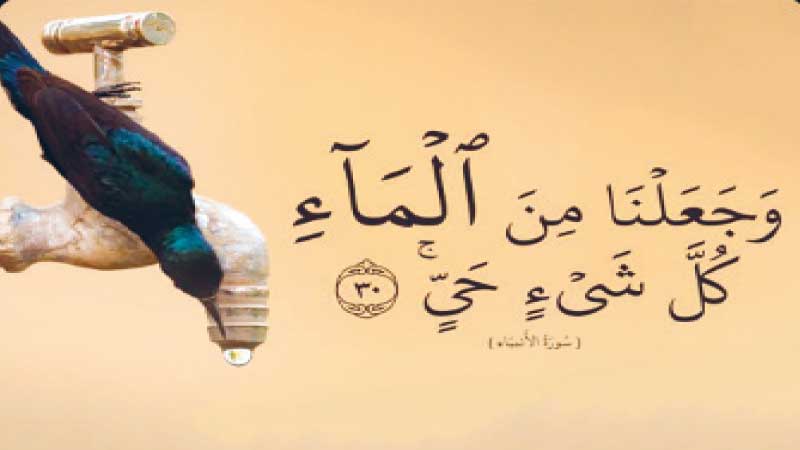 وَجَعَلْنَا مِنَ ٱلْمَآءِ
كُلَّ شَىْءٍ حَىٍّ ۚ ٣٠
( سُورَةُ الأَنبيَاء )